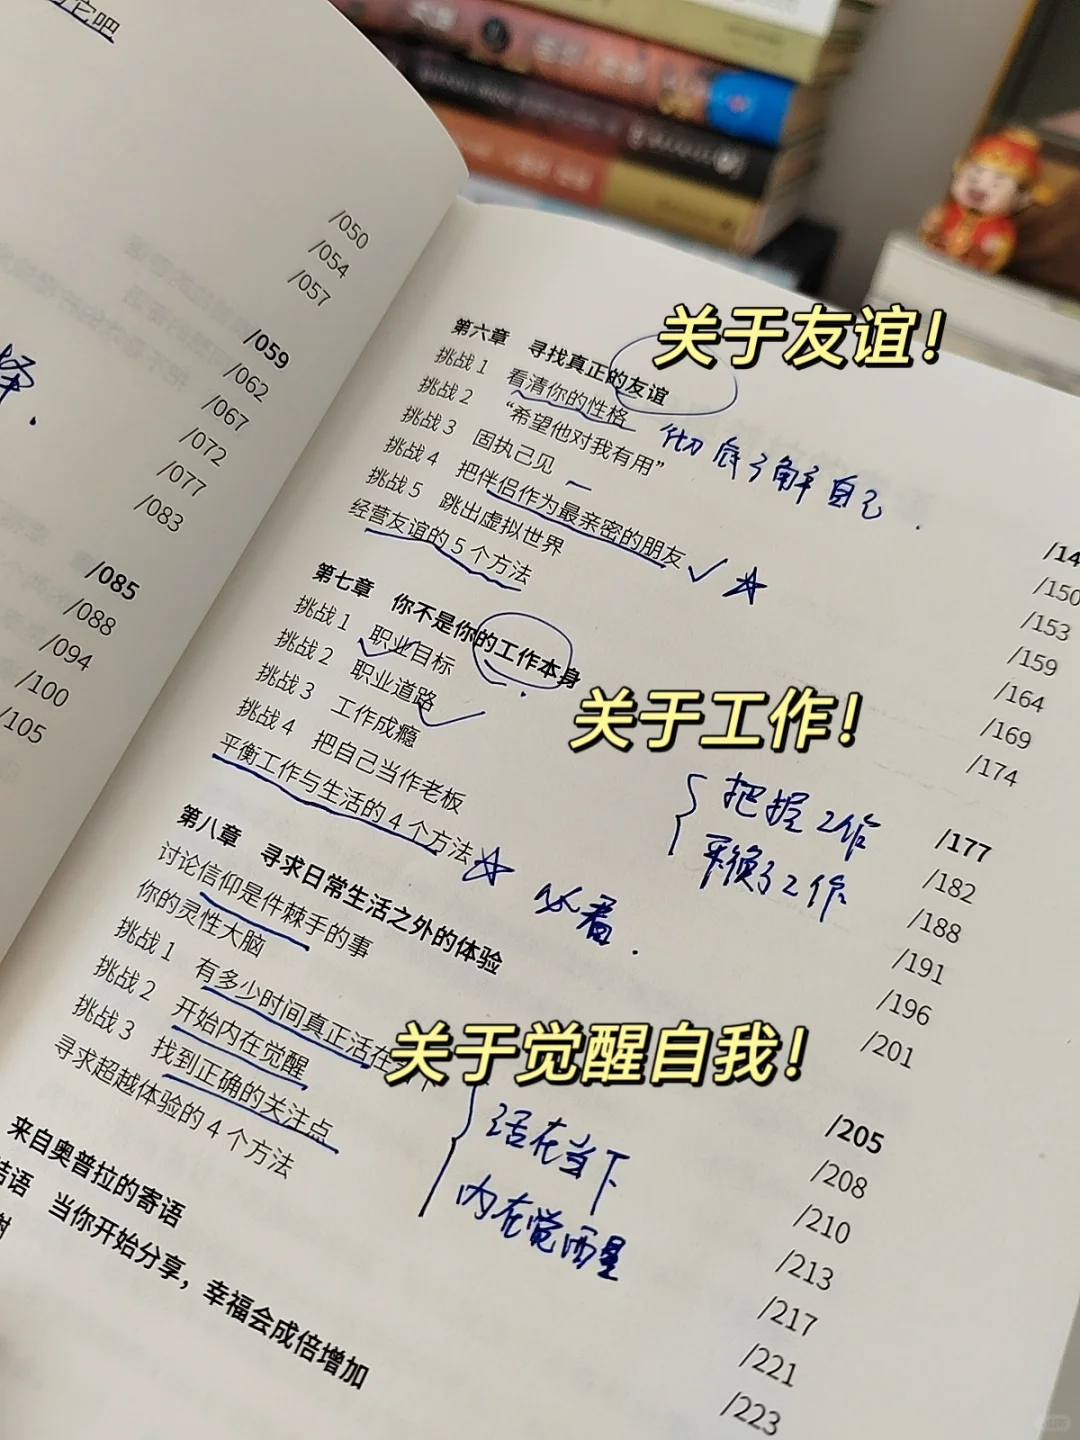 它吧
/050
/054
/057
/059
/062
/067
/072
/077
/083
/085
/088
/094
/100
/105
择.
关于友谊!
第六章 寻找真正的友谊
挑战 1 看清你的性格
挑战 2 “希望他对我有用”
彻底了解自己.
挑战 3 固执己见
挑战 4 把伴侣作为最亲密的朋友
挑战 5 跳出虚拟世界
经营友谊的 5 个方法
/14
/150
/153
/159
/164
/169
/174
第七章 你不是你的工作本身
挑战 1 职业目标
挑战 2 职业道路
挑战 3 工作成瘾
挑战 4 把自己当作老板
平衡工作与生活的 4 个方法
关于工作!
把握工作
工作
必看.
/177
/182
/188
/191
/196
/201
第八章 寻求日常生活之外的体验
讨论信仰是件棘手的事
你的灵性大脑
挑战 1 有多少时间真正活在当下
挑战 2 开始内在觉醒
挑战 3 找到正确的关注点
寻求超越体验的 4 个方法
关于觉醒自我!
活在当下
内在觉醒
/205
/208
/210
/213
/217
/221
/223
来自奥普拉的寄语
结语 当你开始分享，幸福会成倍增加
谢